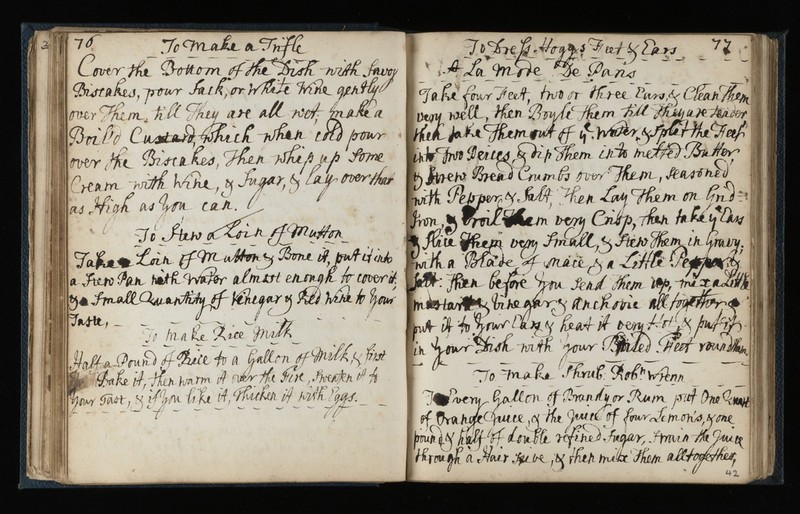 2
76
To make a Trifle
Cover the Bottom of the Dish with Savoy
Biscakes, pour Sack, or White Wine gently
over Them, till They are all wet, make a
Boil'd Custard, which when cold pour
over the Biscakes, Then whip up Some
Cream with Wine, & Sugar, & lay over that
as High as you can.
To Stew a Loin of Mutton
Take a Loin of Mutton & Bone it, put it into
a Stew Pan with Water almost enough to cover it,
& a Small Quantity of Vinegar & Red Wine to your
Taste,
To make Rice Milk
Half a Pound of Rice to a Gallon of Milk, & first
Bake it, Then warm it over the Fire, Sweeten it to
your Tast, & if you like it, Thicken it with Eggs.
77
To Dress Hoggs Feet & Ears
A La Mode De Paris
Take four Feet, two or three Ears, & Clean Them
very well, then Boyle Them till They are Tender
then take Them out of ye Water & Split the Feet
into Two Peices, & dip Them into melted Butter,
& Strew Bread Crumbs over Them, Seasoned
with Pepper, & Salt, Then Lay Them on Grid=
Iron, & broil Them very Crisp, Then take ye Ears
& Slice Them very Small, & Stew Them in Gravy;
with a Blade of mace & a Little Pepper &
Salt: Then before you Send Them up, mix a Little
mustard & Vinegar & anchovie all together &
put it to your Ears & heat it very Hot, & put it
in your Dish with your Broiled Feet round Them
To make Shrub. Robt. Wrenn
To Every Gallon of Brandy or Rum put One Quart
of Orange Juice, & the Juice of four Lemons, & one
pound & half of double refined Sugar, Strain the Juice
through a Hair Sieve, & then mixe Them all together,
42